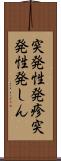 突発性発疹突
発性発しん